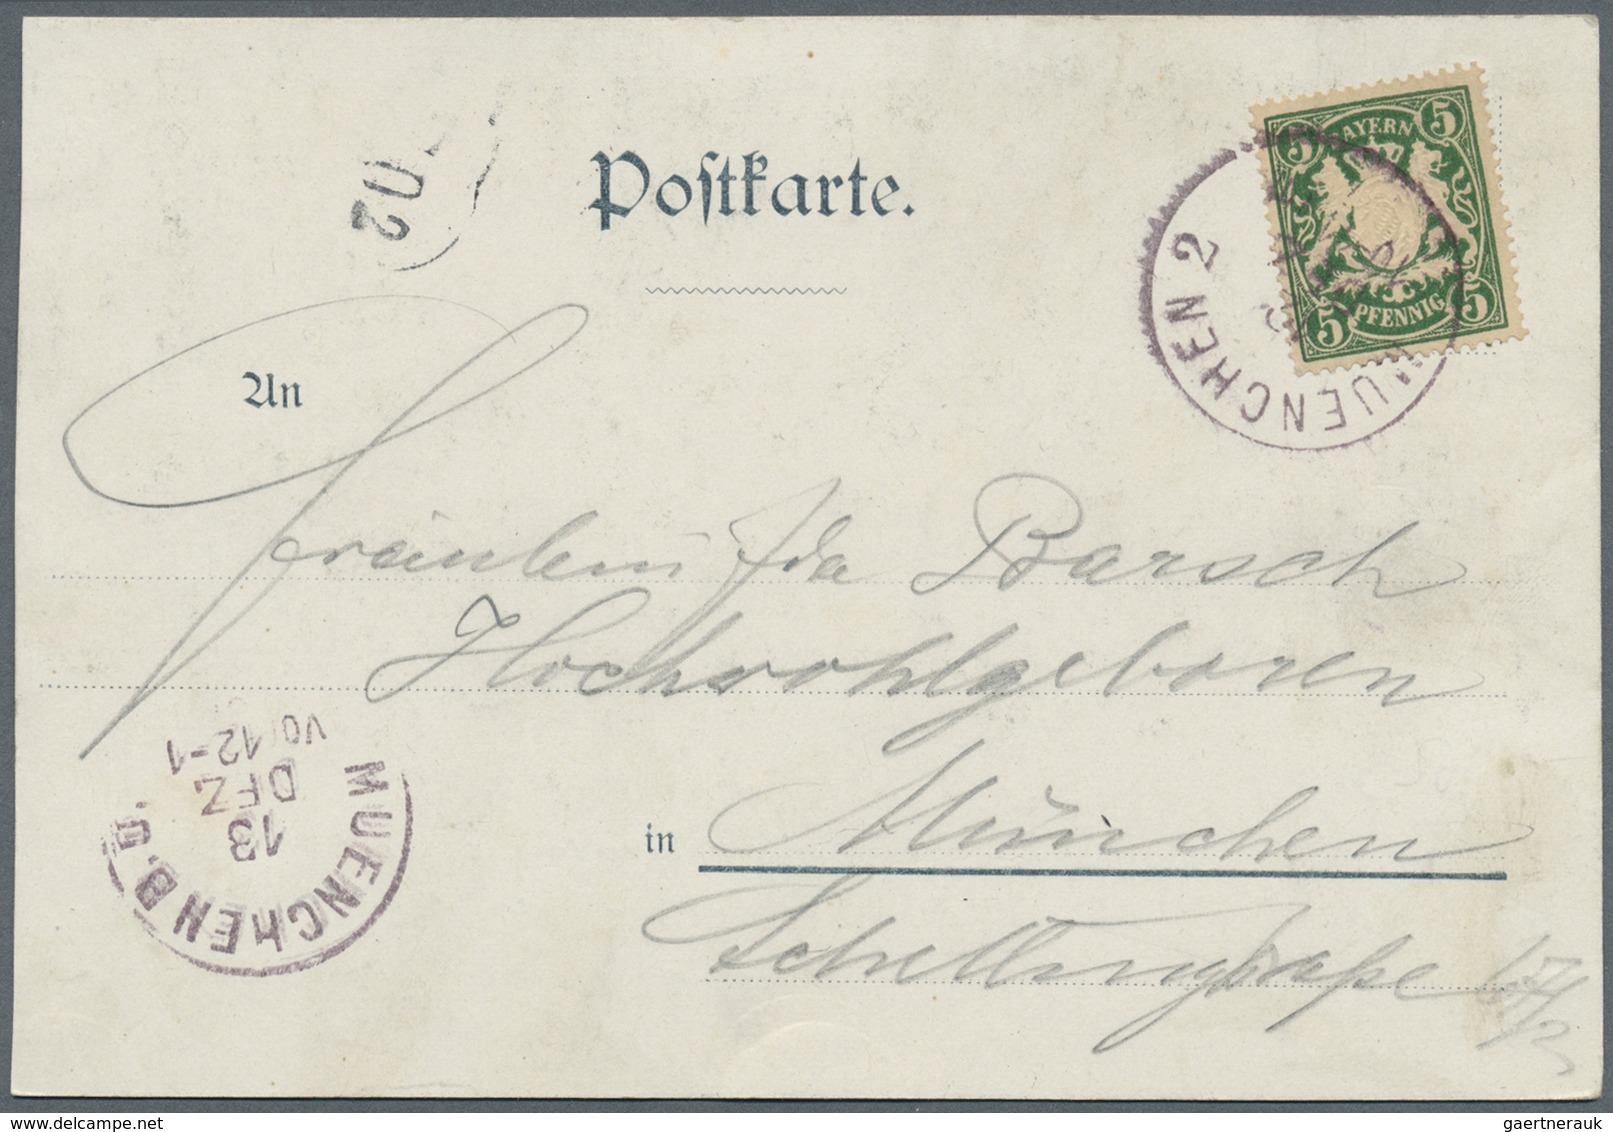 Postkarte.
02
BAYERN
5 5
5 PFENNIG 5
MUENCHEN 2
An
Fräulein Ida Barsch
Hochwohlgeboren
in München
Schellingstraße 67/2
MUENCHEN B.P.
13
DEZ
VO 12-1
gaertnerauk